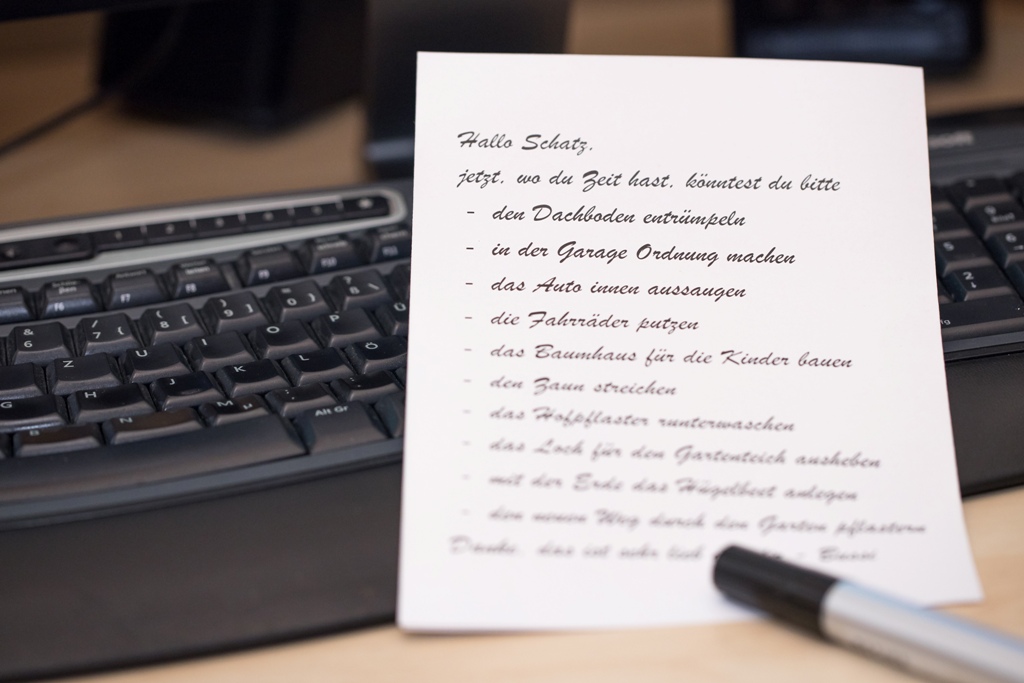 Hallo Schatz,
jetzt, wo du Zeit hast, könntest du bitte
- den Dachboden entrümpeln
- in der Garage Ordnung machen
- das Auto innen aussaugen
- die Fahrräder putzen
- das Baumhaus für die Kinder bauen
- den Zaun streichen
- das Hofpflaster runterwaschen
- das Loch für den Gartenteich ausheben
- mit der Erde das Hügelbeet anlegen
- den neuen Weg durch den Garten pflastern
Danke, das ist sehr lieb - Bussi
F6 F7 F8 F9 F10
& 6 / 7 { ( 8 [ ) 9 ] = 0 }
Z U I O P Ü
G H J K L Ö
B N M µ Alt Gr
9
2